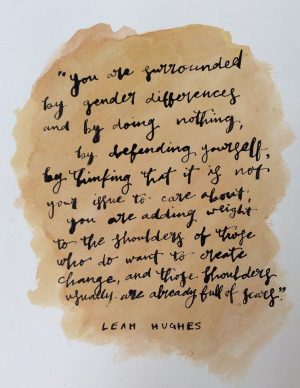 "you are surrounded
by gender differences
and by doing nothing,
by defending yourself,
by thinking that it is not
your issue to care about,
you are adding weight
to the shoulders of those
who do want to create
change, and those shoulders
usually are already full of scars."
LEAH HUGHES